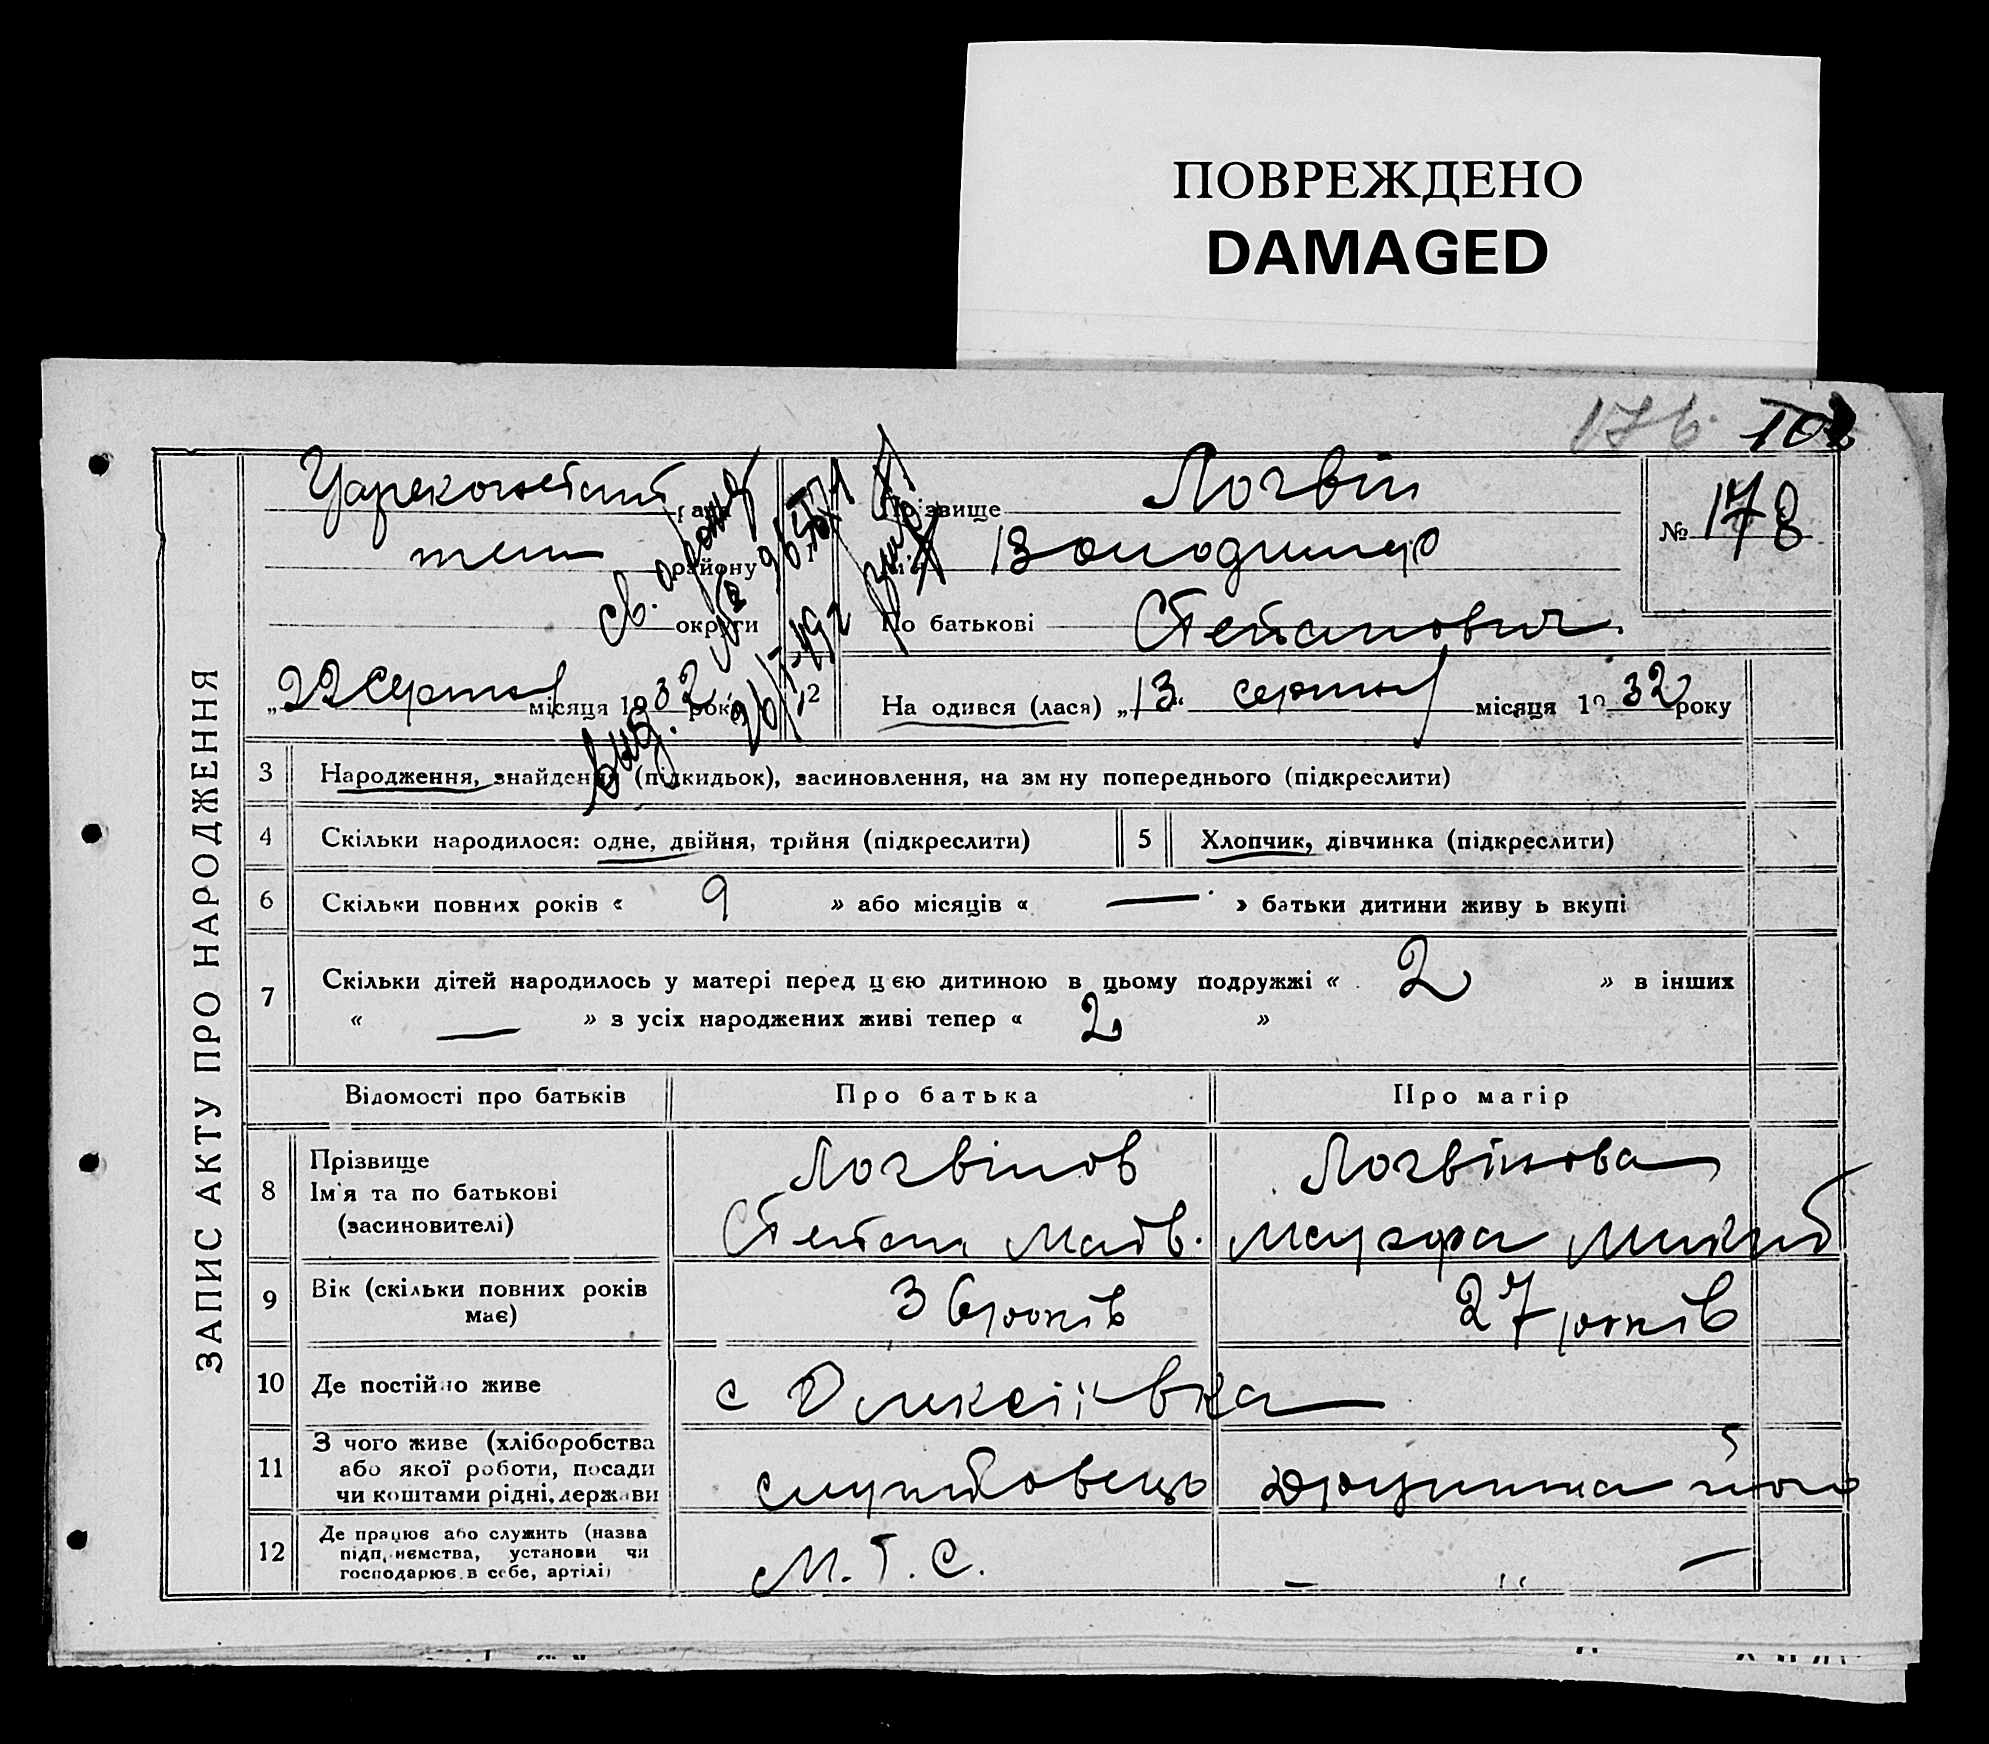 ПОВРЕЖДЕНО
DAMAGED
176. 102
ЗАПИС АКТУ ПРО НАРОДЖЕННЯ
рада
району
округи
„22 серпня місяця 1932 року
2
Прізвище Логвін
Ім'я Володимир
По батькові Степанович
№ 178
Народився (лася) „13" серпня місяця 1932 року
3 Народження, знайдення (підкидьок), засиновлення, на зміну попереднього (підкреслити)
4 Скільки народилося: одне, двійня, трійня (підкреслити) 5 Хлопчик, дівчинка (підкреслити)
6 Скільки повних років « 9 » або місяців « — » батьки дитини живуть вкупі
7 Скільки дітей народилось у матері перед цією дитиною в цьому подружжі « 2 » в інших
« — » з усіх народжених живі тепер « 2 »
Відомості про батьків Про батька Про матір
8 Прізвище Ім'я та по батькові (засиновителі) Логвінов Степан Матв. Логвінова Марфа
9 Вік (скільки повних років має) 36 років 27 років
10 Де постійно живе с Олексіївка
11 З чого живе (хліборобства або якої роботи, посади чи коштами рідні, держави службовець дружина його
12 Де працює або служить (назва підприємства, установи чи господарює в себе, артілі) М.Т.С. —